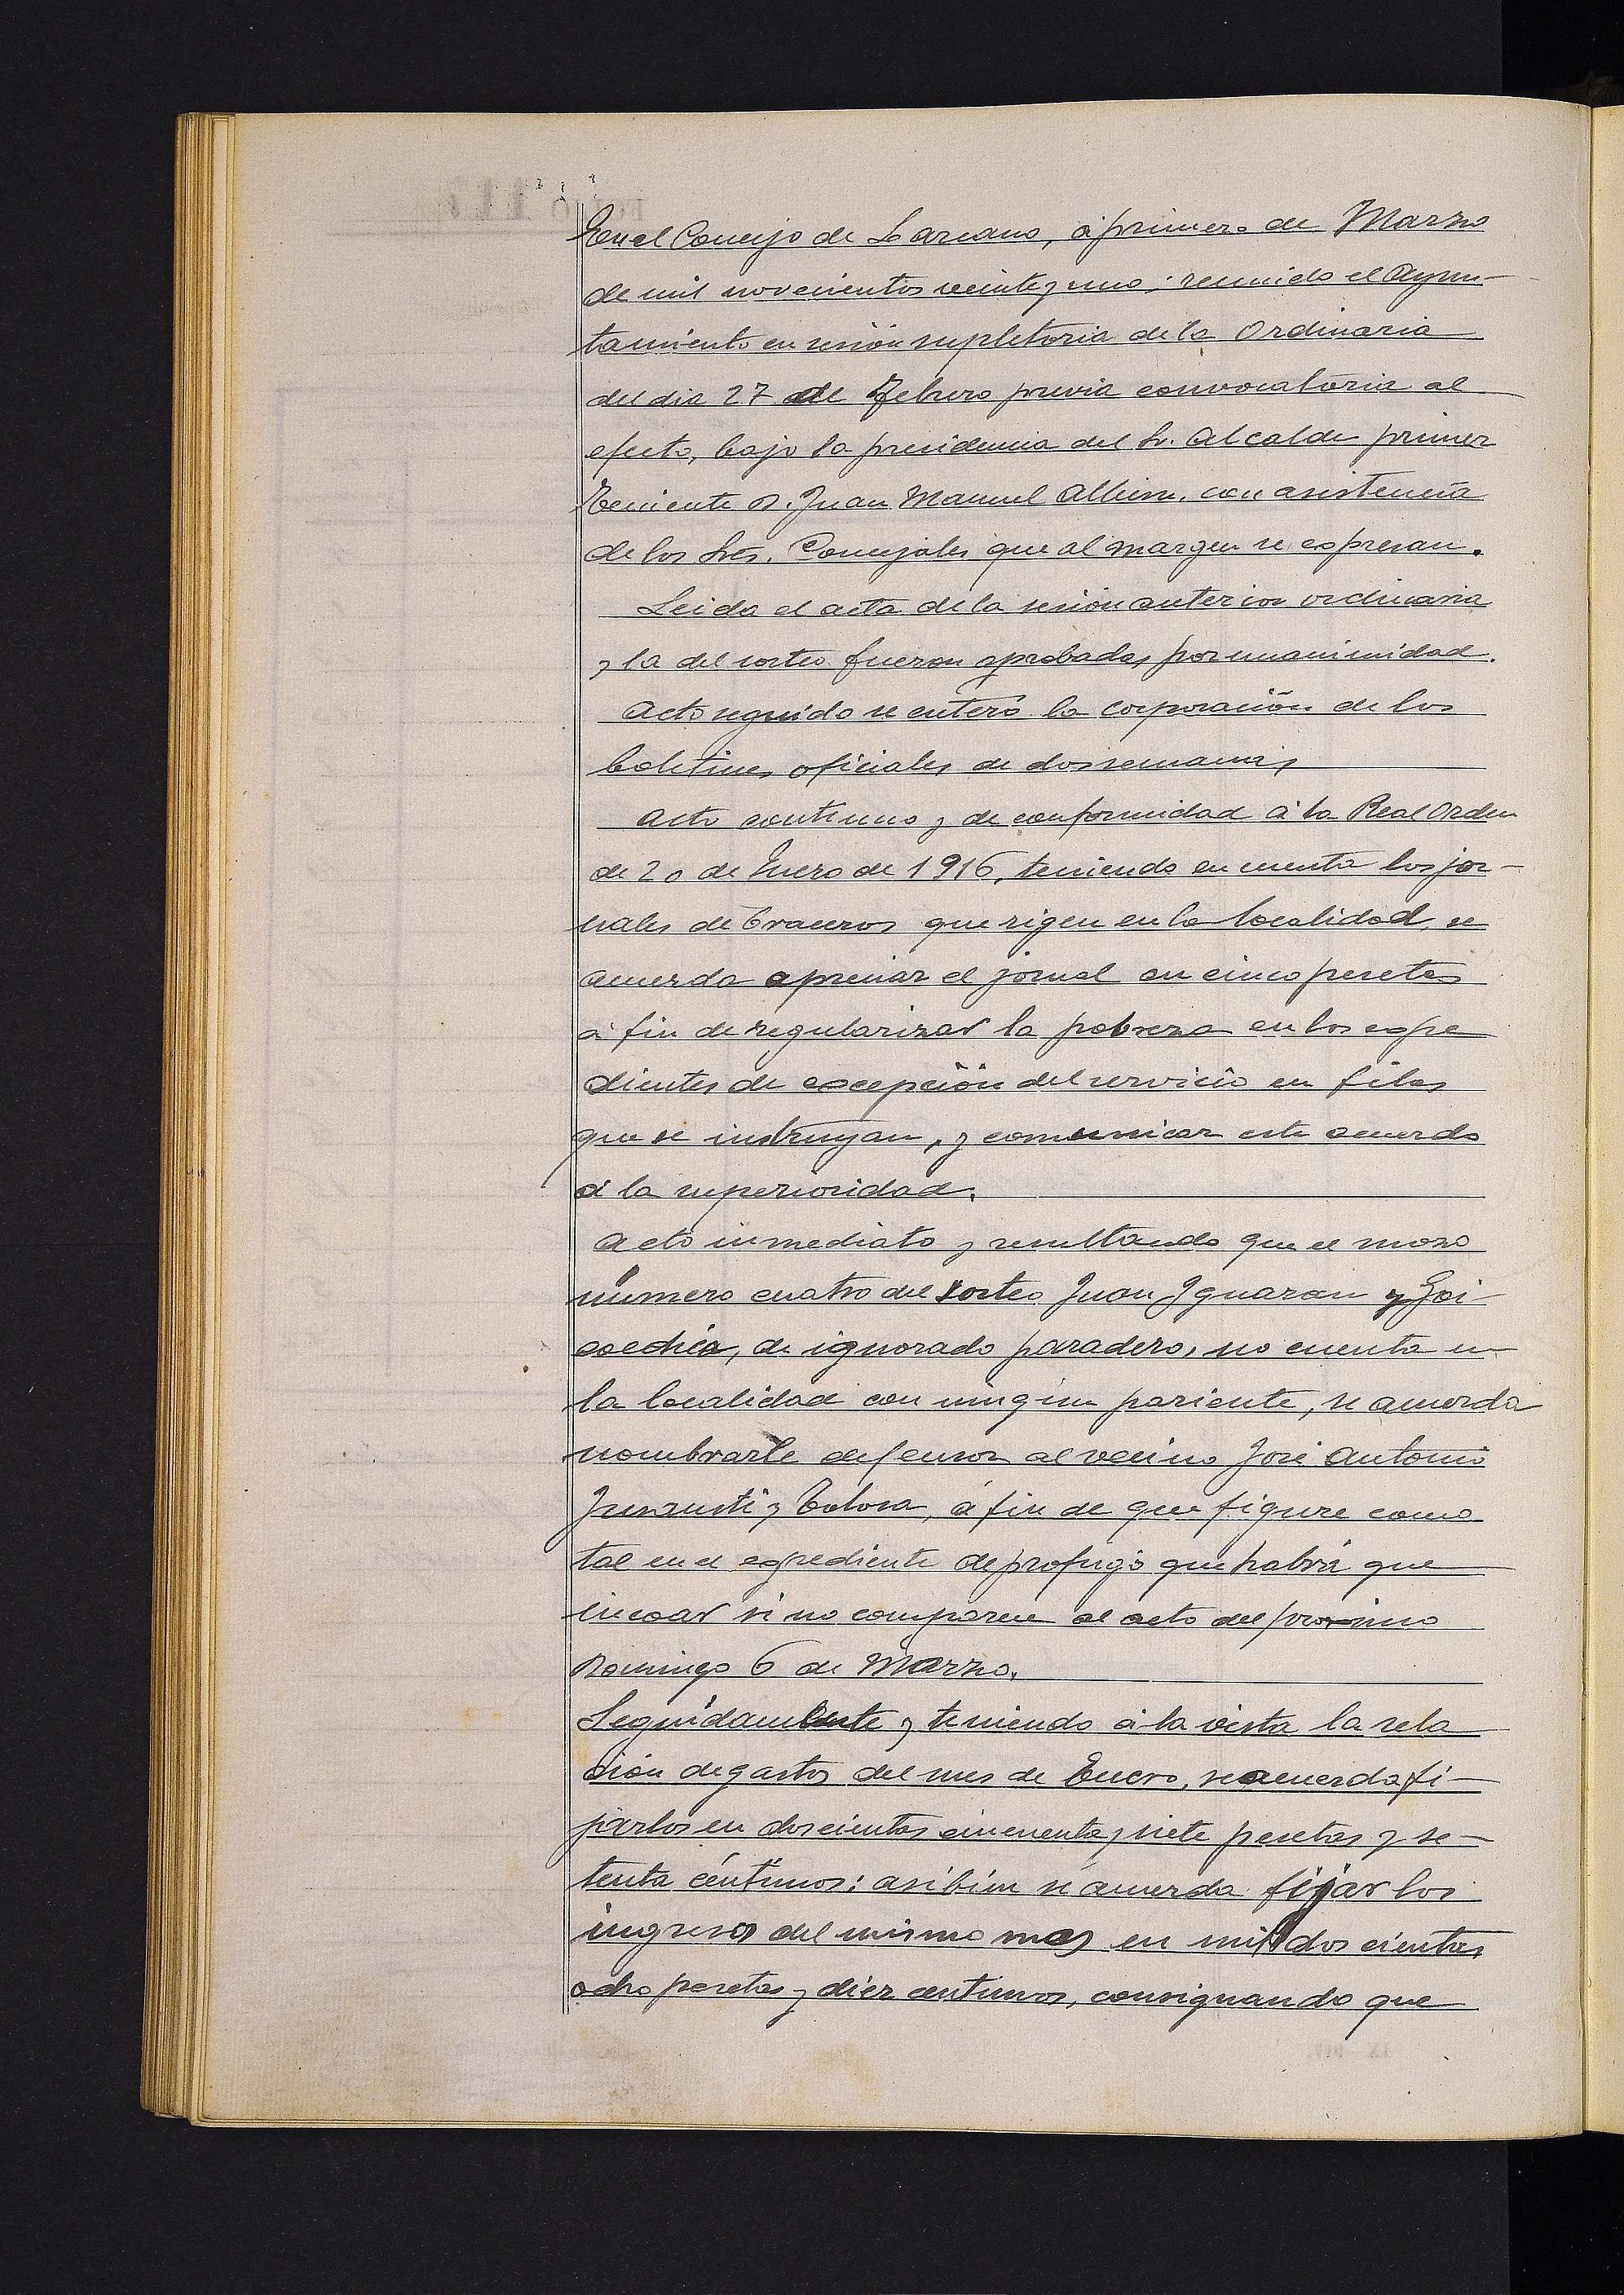 En el Concejo de Lazcano, á primero de Marzo
de mil novecientos veinte y uno; reunido el Ayun-
tamiento en sesión supletoria de la Ordinaria
del dia 27 de Febrero previa convocatoria al
efecto, bajo la presidencia del Sr. Alcalde primer
Teniente D. Juan Manuel Albisu, con asistencia
de los Sres. Concejales que al margen se espresan.
Leida el acta de la sesión anterior ordinaria
y la del sorteo fueron aprobadas por unanimidad.
Acto seguido se enteró la corporación de los
boletines oficiales de dos semanas
Acto continuo y de conformidad á la Real Orden
de 20 de Enero de 1916, teniendo en cuenta los jor-
nales de braceros que rigen en la localidad, se
acuerda apreciar el jornal en cinco pesetas
á fin de regularizar la pobreza en los espe
dientes de escepción del servicio en filas
que se instruyan, y comunicar este acuerdo
á la superioridad.
Acto inmediato y resultando que el mozo
número cuatro del sorteo Juan Iguaran y Goi-
coechea, de ignorado paradero, no cuenta en
la localidad con ningún pariente, se acuerda
nombrarle defensor al vecino José Antonio
y Tolosa, á fin de que figure como
tal en el espediente de profugo que habrá que
incoar si no comparece al acto del proximo
Domingo 6 de Marzo.
Seguidamente y teniendo á la vista la rela
ción de gastos del mes de Enero, se acuerda fi-
jarlos en doscientas cincuenta y siete pesetas y se-
tenta céntimos; asi bien se acuerda fijar los
ingresos del mismo mes en mil dos cientas
ocho pesetas y diez centimos, consignando que